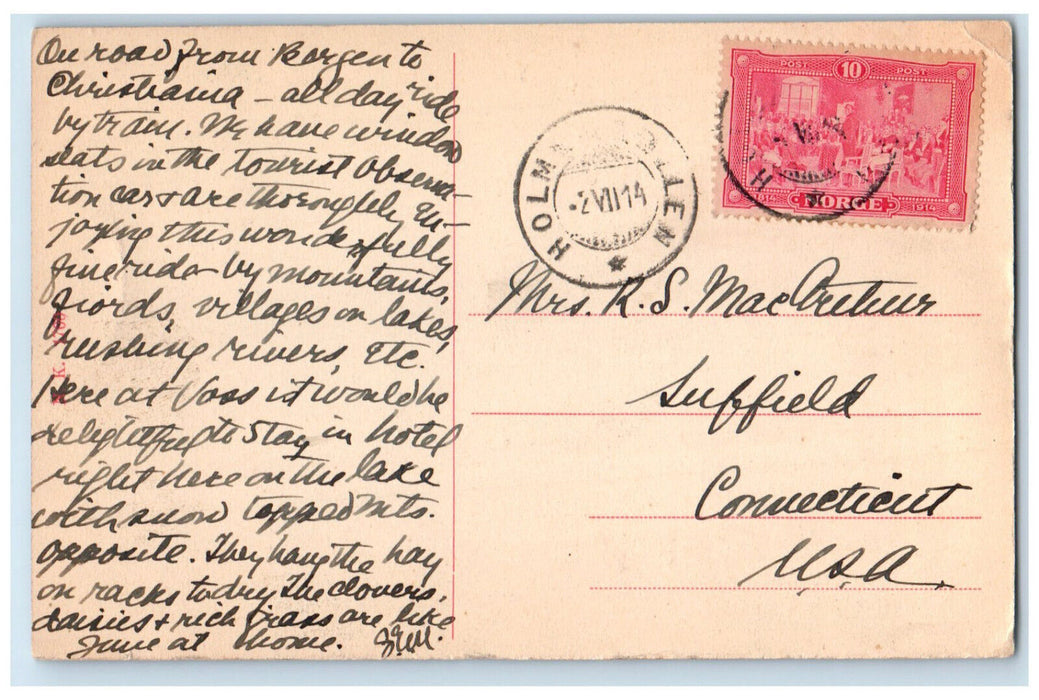 On road from Bergen to
Christiania - all day ride
by train. We have window
seats in the tourist observa-
tion car & are thoroughly en-
joying this wonderfully
fine ride by mountains,
fiords, villages on lakes,
rushing rivers, etc.
Here at Voss it would be
delightful to stay in hotel
right here on the lake
with snow topped mts.
opposite. They hang the hay
on racks to dry. The clovers,
daisies & rich grass are like
June at home.
HOLMENKOLLEN
-2 VII 14
POST 10 POST
1814 NORGE 1914
Mrs. R. S. MacArthur
Suffield
Connecticut
U.S.A.
K.